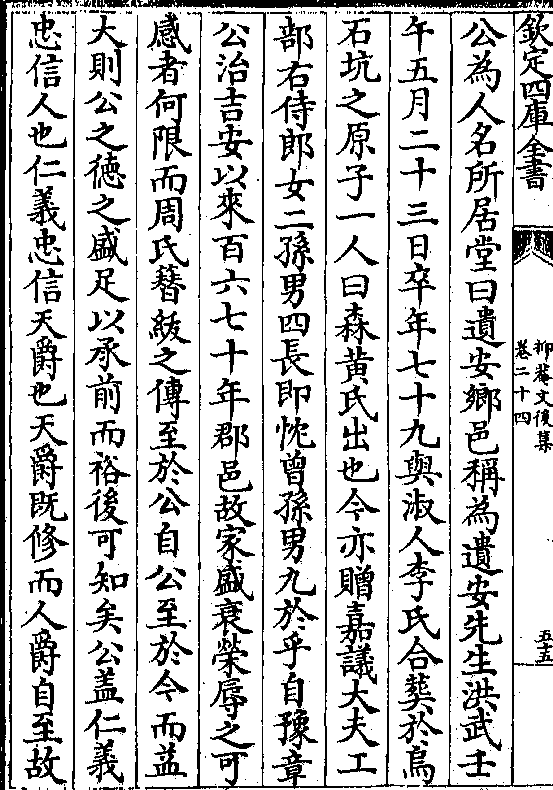 欽定四庫全書
抑菴文後集
卷二十四
五五
公為人名所居堂曰遺安鄉邑稱為遺安先生洪武壬
午五月二十三日卒年七十九與淑人李氏合葬於烏
石坑之原子一人曰森黃氏出也今亦贈嘉議大夫工
部右侍郎女二孫男四長即忱曾孫男九於乎自豫章
公治吉安以來百六七十年郡邑故家盛衰榮辱之可
感者何限而周氏簪紱之傳至於公自公至於今而益
大則公之德之盛足以承前而裕後可知矣公盖仁義
忠信人也仁義忠信天爵也天爵既修而人爵自至故